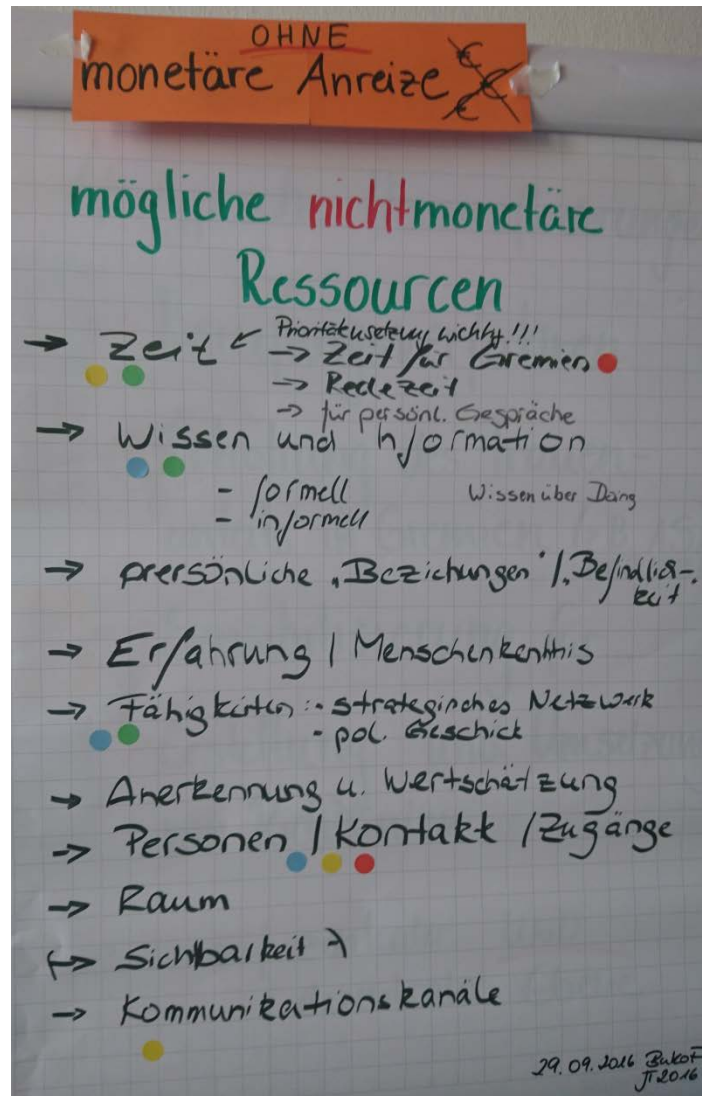 OHNE
monetäre Anreize € € €
mögliche nichtmonetäre
Ressourcen
→ Zeit ← Prioritätensetzung wichtig!!!
→ Zeit für Gremien
→ Redezeit
→ für persönl. Gespräche
→ Wissen und Information
- formell
- informell
Wissen über Dang
→ prersönliche „Beziehungen"/„Befindlich-
keit
→ Erfahrung / Menschenkenntnis
→ Fähigkeiten: - strategisches Netzwerk
- pol. Geschick
→ Anerkennung u. Wertschätzung
→ Personen / Kontakt / Zugänge
→ Raum
→ Sichtbarkeit
→ Kommunikationskanäle
29.09.2016 BukoF
JT 2016